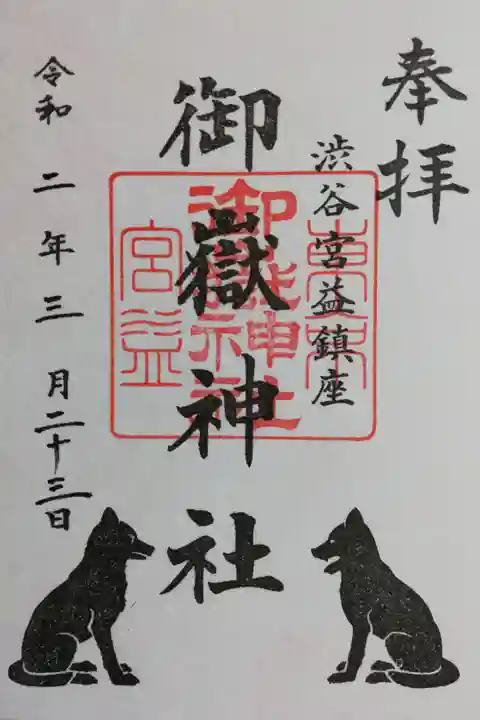 奉拝
渋谷宮益鎮座
御嶽神社
令和二年三月二十三日
東京
宮益